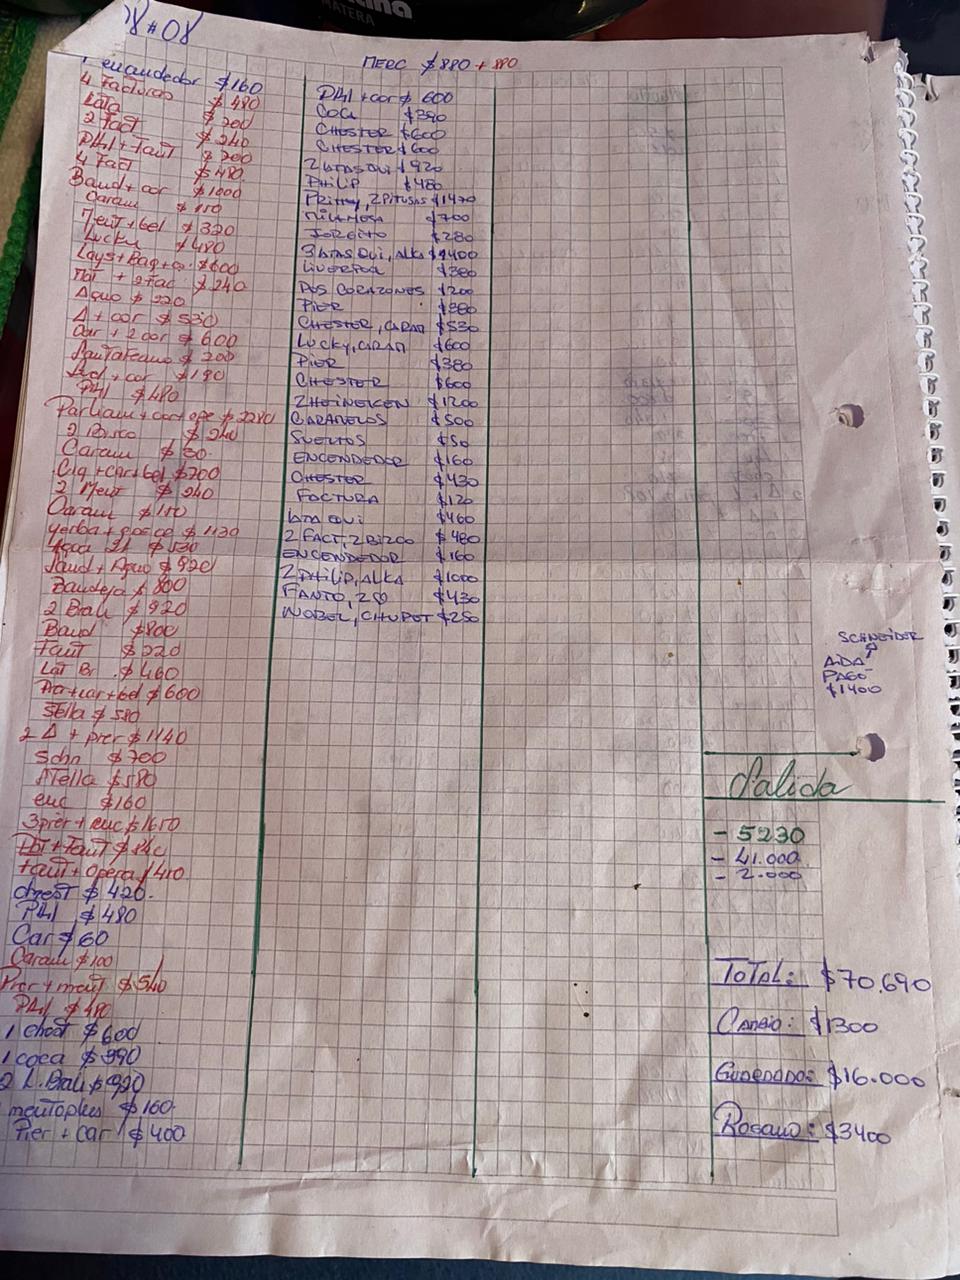 MATERA
08*08
MERC $880 + 880
1 encendedor $160
4 Facturas $480
Lata $700
2 Fact $240
Phil + Tauit $700
4 Fact $480
Baud + cor $1000
Caram $150
Ment + bel $320
Lucky $480
Lays + Bag + co. $600
+ 2 fac $240
Agua $220
Δ + cor $530
Car + 2 cor $600
$200
+ cor $190
Phil $480
Parliam + coc + ope $2280
2 $240
Caram $50.
Cig + car + bel $700
2 Ment $240
Caram $150
yerba + gasee $1130
$530
Saud + Agua $920
Bandeja $800
2 Brah $920
Baud $800
Tauit $220
Lat Br. $460
+ car + bel $600
Stella $580
2 Δ + pier $1140
Schn $700
Stella $580
enc $160
3 pier + enc $1650
Pbt + Tauit $840
Tauit + opera $410
chest $420.
Phil $480
Car $60
Caram $100
Pier + ment $540
Phil $480
1 chest $600
1 coca $390
2 L. Brah $920
mentoplus $160
Pier + car $400
Phil + cor $600
COCA $390
CHESTER $600
CHESTER $600
2 LATAS QUI $920
PHILIP $480
PRITTY, 2 PITUSAS $1470
MILANESA $700
JORGITO $280
3 LATAS QUI, ALKA $1400
LIVERPOOL $380
DOS CORAZONES $200
PIER $380
CHESTER, CARAM $530
LUCKY, CARAM $600
PIER $380
CHESTER $600
2 HEINEKEN $1200
CARAMELOS $500
SUELTOS $50
ENCENDEDOR $160
CHESTER $430
FACTURA $120
LATA QUI $460
2 FACT, 2 BIZCO $480
ENCENDEDOR $160
2 PHILIP, ALKA $1000
FANTO, 2 $430
NOBEL, CHUPET $250
SCHNEIDER
AIDA
PAGO
$1400
Salida
- 5230
- 41.000
- 2.000
TOTAL: $70.690
CAMBIO: $1300
GUARDADO: $16.000
ROSARIO: $3400